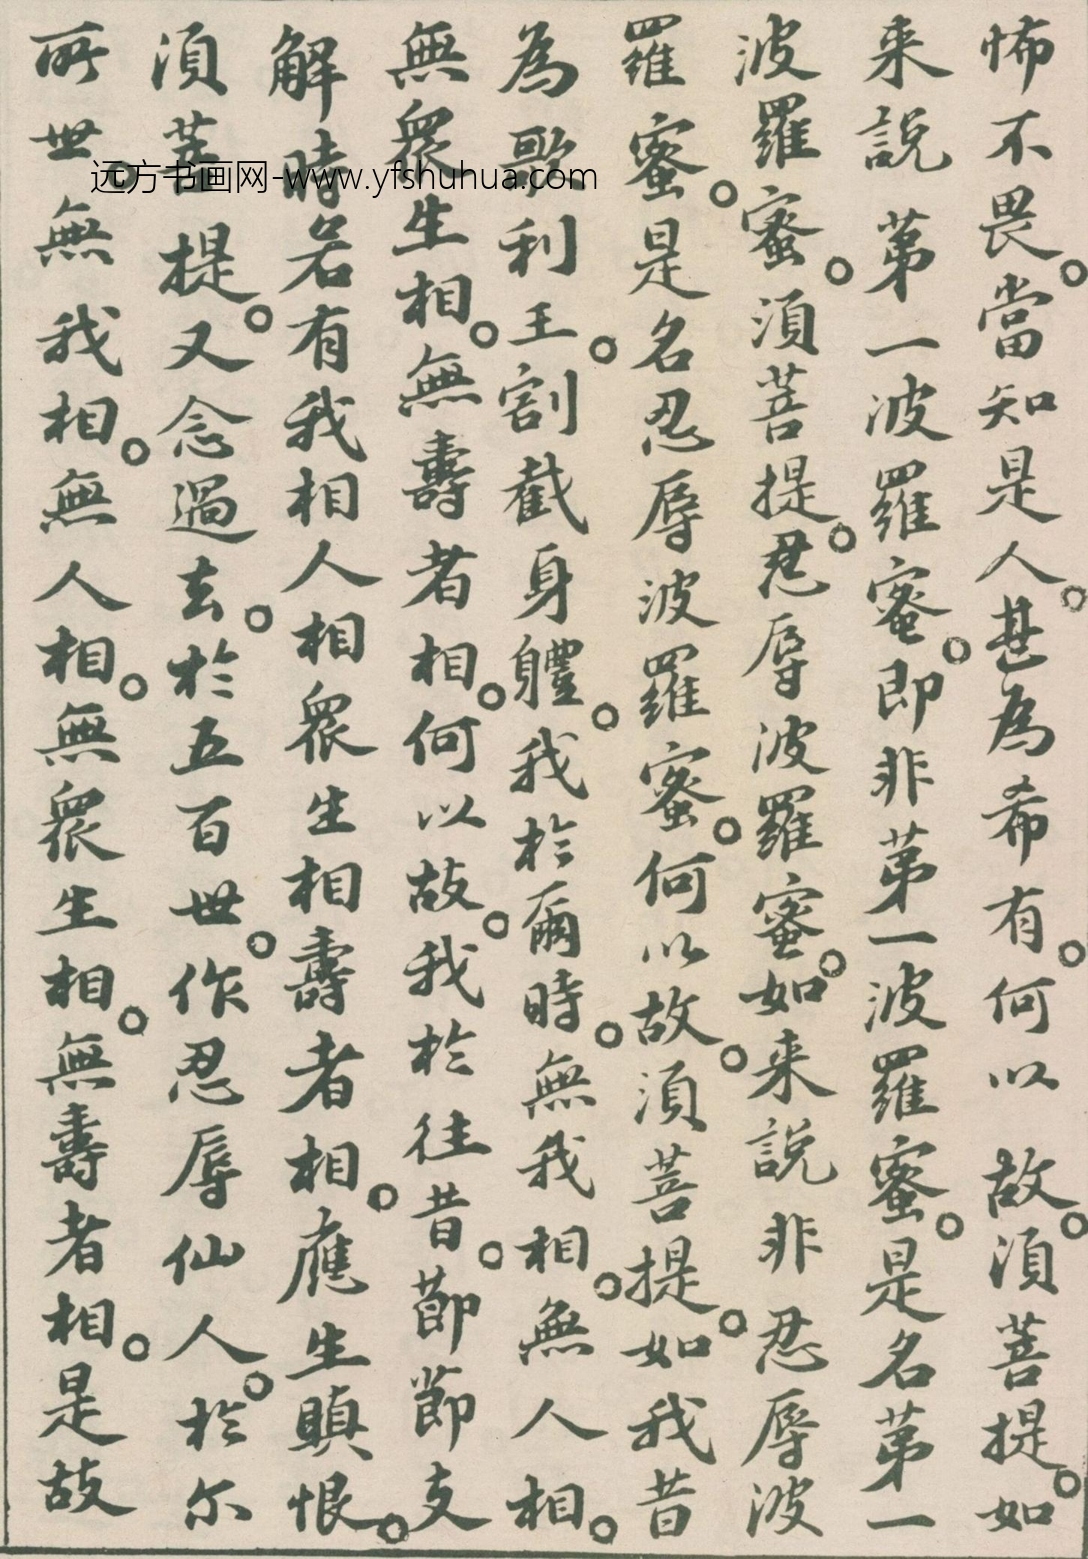 怖不畏。當知是人。甚為希有。何以故。須菩提。如
来說第一波羅蜜。即非第一波羅蜜。是名第一
波羅蜜。須菩提。忍辱波羅蜜。如来說非忍辱波
羅蜜。是名忍辱波羅蜜。何以故。須菩提。如我昔
為歌利王。割截身體。我於爾時。無我相。無人相。
無衆生相。無壽者相。何以故。我於往昔。節節支
解時若有我相人相衆生相壽者相。應生瞋恨。
須菩提。又念過去。於五百世。作忍辱仙人。於尔
所世。無我相。無人相。無衆生相。無壽者相。是故
远方书画网-www.yfshuhua.com